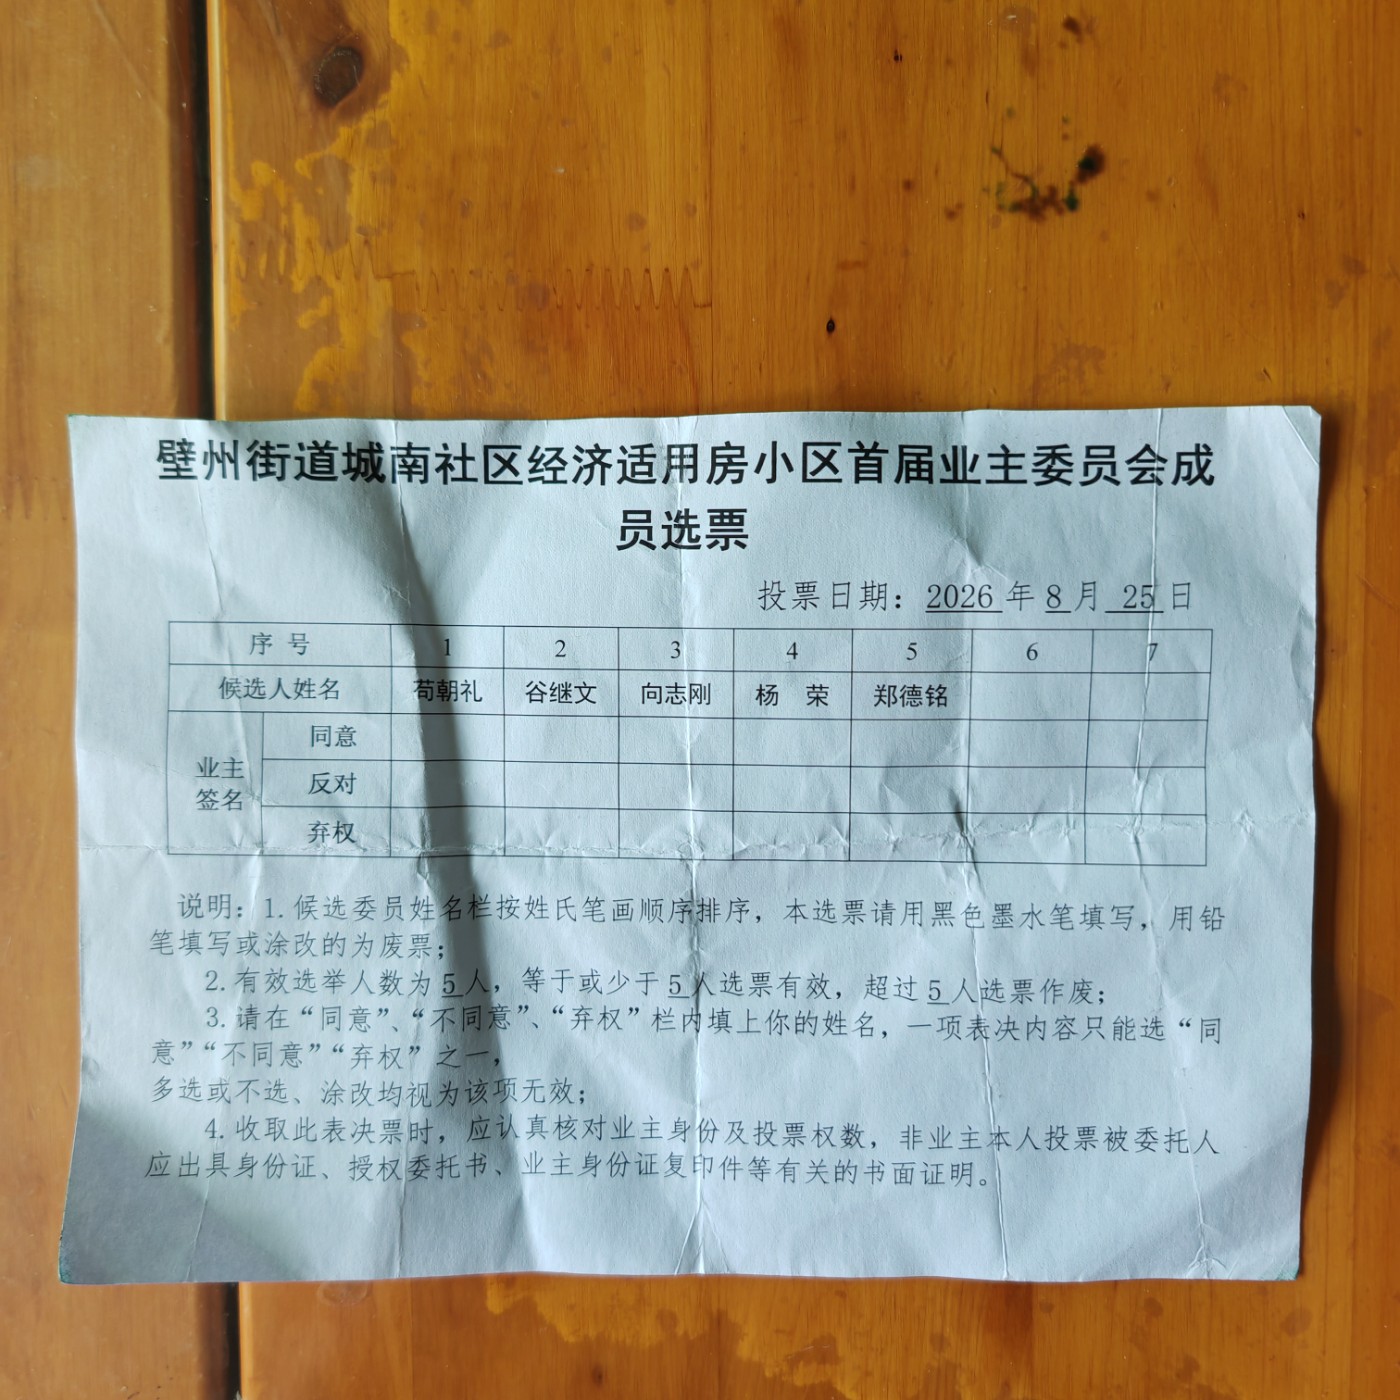 壁州街道城南社区经济适用房小区首届业主委员会成
员选票
投票日期：2026 年 8 月 25 日
序 号 1 2 3 4 5 6 7
候选人姓名 苟朝礼 谷继文 向志刚 杨 荣 郑德铭
业主签名
同意
反对
弃权
说明：1.候选委员姓名栏按姓氏笔画顺序排序，本选票请用黑色墨水笔填写，用铅
笔填写或涂改的为废票；
2.有效选举人数为 5 人，等于或少于 5 人选票有效，超过 5 人选票作废；
3.请在“同意”、“不同意”、“弃权”栏内填上你的姓名，一项表决内容只能选“同
意”“不同意”“弃权”之一，
多选或不选、涂改均视为该项无效；
4.收取此表决票时，应认真核对业主身份及投票权数，非业主本人投票被委托人
应出具身份证、授权委托书、业主身份证复印件等有关的书面证明。